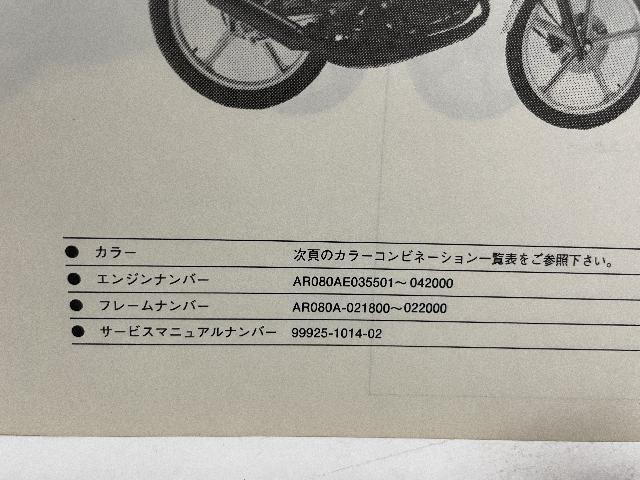 ● カラー 次頁のカラーコンビネーション一覧表をご参照下さい。
● エンジンナンバー AR080AE035501～042000
● フレームナンバー AR080A-021800～022000
● サービスマニュアルナンバー 99925-1014-02